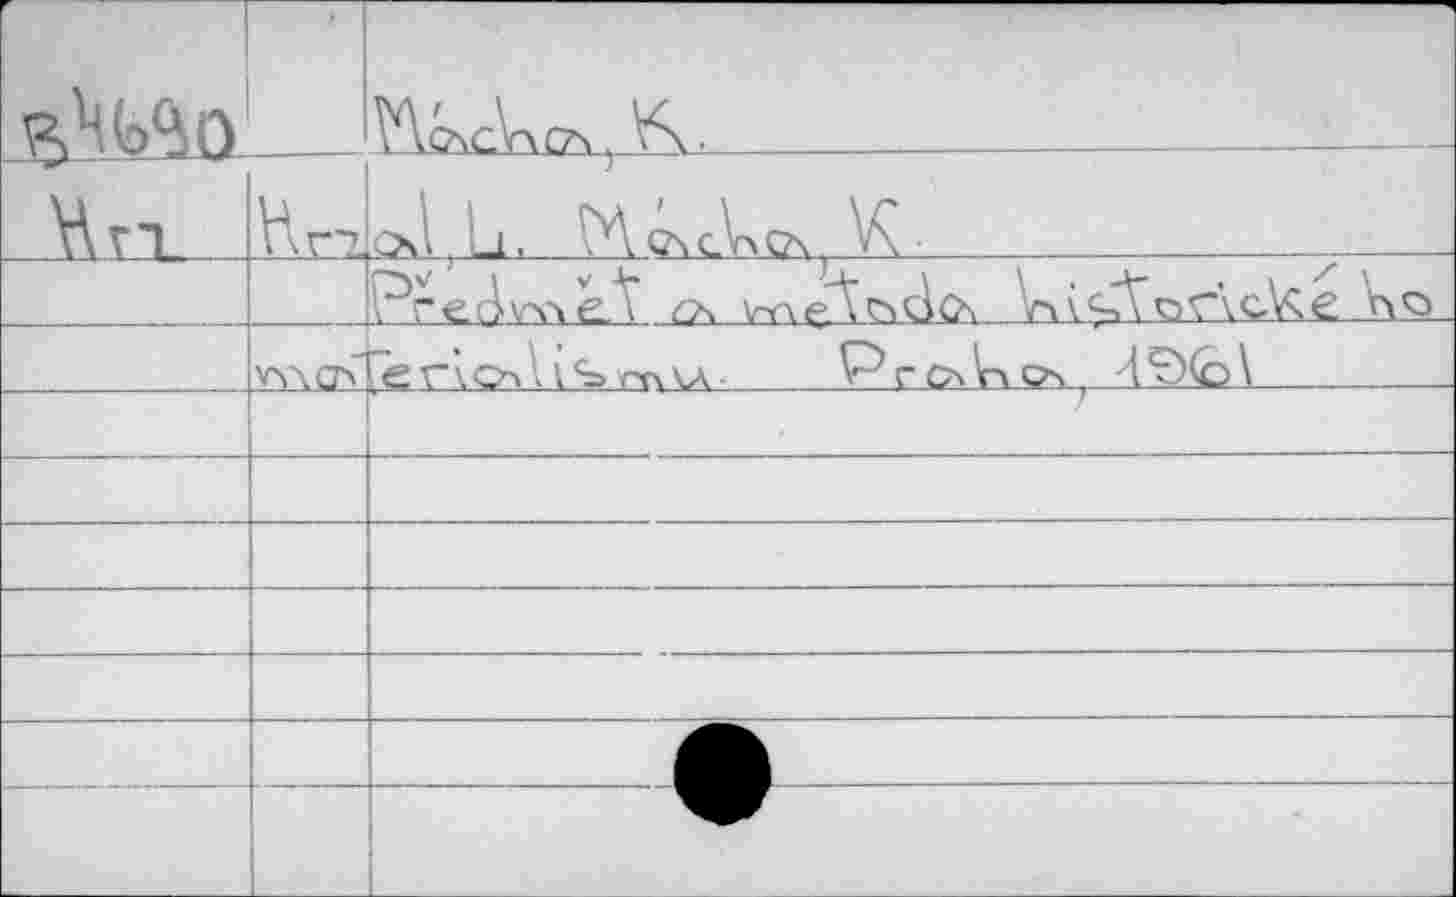 B4690 Mácha, K.
Hrz Hrzal, L. Mácha, K.
Předmět a metoda historické ho
materialismu. Praha, 1961